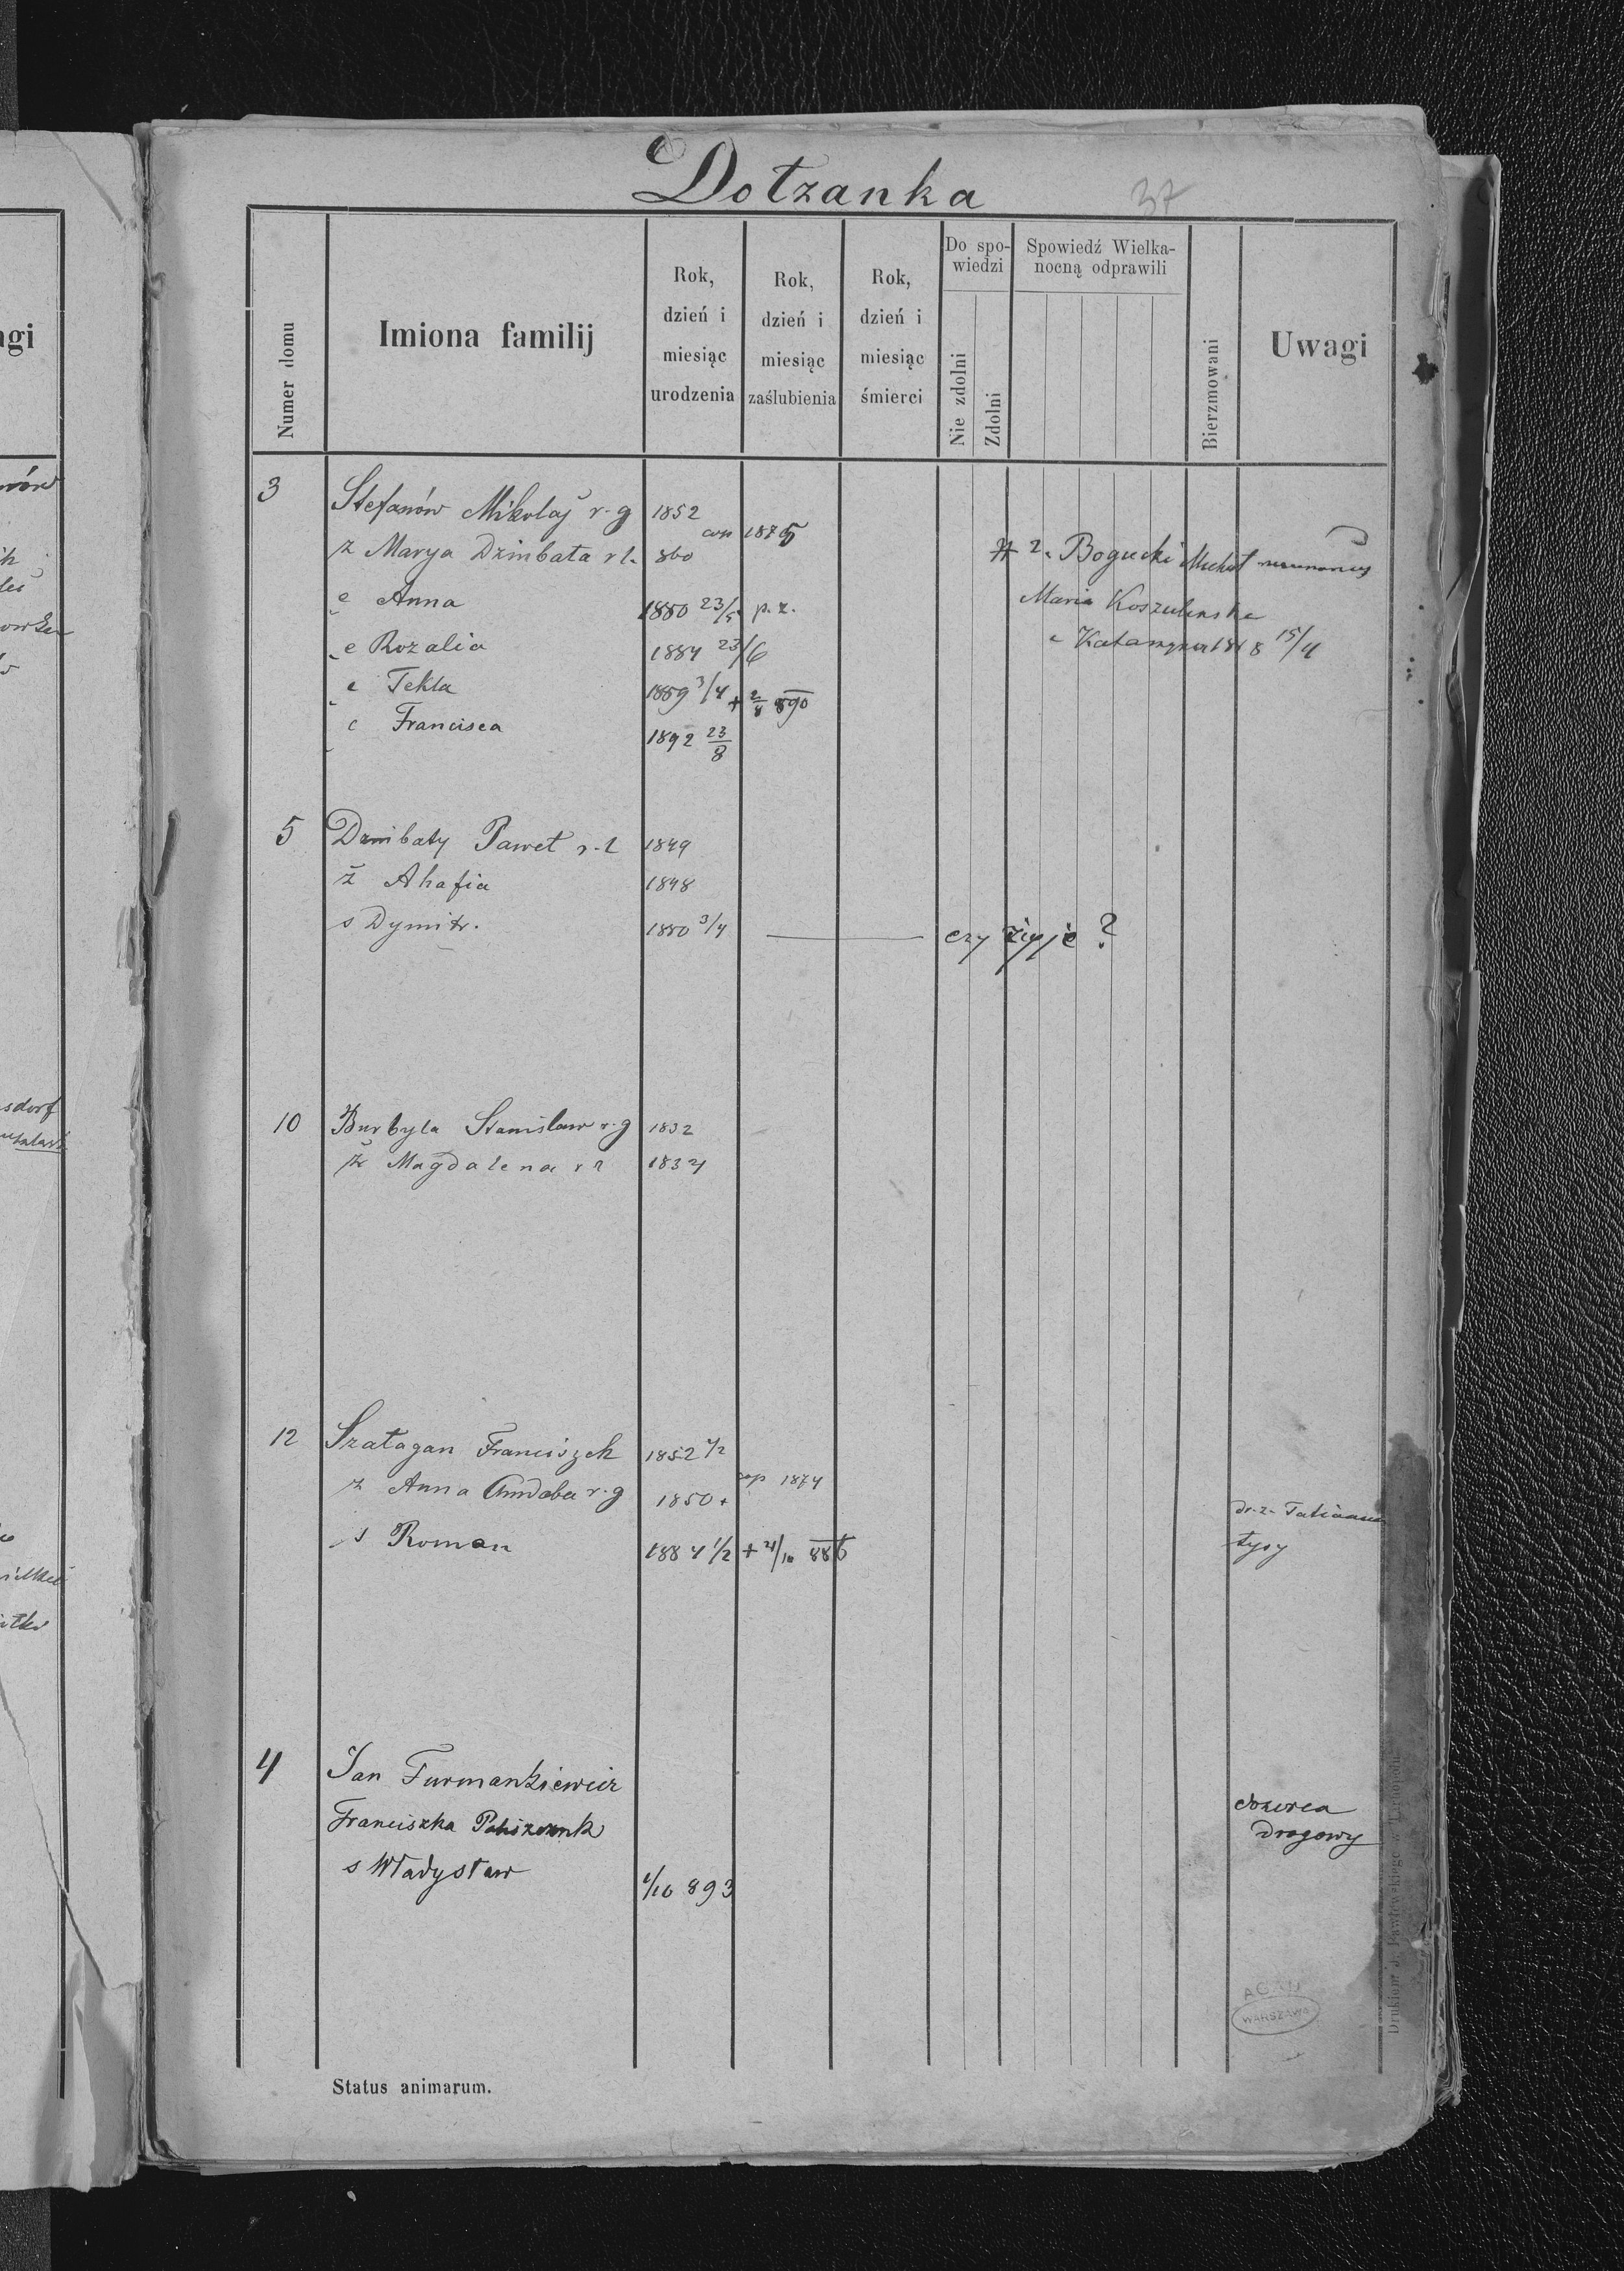 Dotzanka
37
Numer domu
Imiona familij
Rok, dzień i miesiąc urodzenia
Rok, dzień i miesiąc zaślubienia
Rok, dzień i miesiąc śmierci
Do spowiedzi
Nie zdolni
Zdolni
Spowiedź Wielkanocną odprawili
Bierzmowani
Uwagi
3 Stefanów Mikołaj r. g 1852
cop 1875
ż Marya Dzimbata r l. 860
# 2. Bogucki Michał
c Anna 1880 23/5 p. z.
Maria
c Rozalia 1884 23/6
c Katarzyna 15/4
c Tekla 1889 3/4 + 2/8 890
c Francisca 1892 23/8
5 Dzmibaty Paweł r. l 1849
ż Ahafia 1848
s Dymitr. 1880 3/4 czy żyje ?
10 Burbyla Stanisław r. g 1832
ż Magdalena r l 1834
12 Szatagan Franciszek 1852 4/2
cop 1874
ż Anna r. g 1850 +
dr. ż. Tatianna
s Roman 1884 1/2 + 4/10 886
4 Jan Furmankiewicz
dozorca
Franciszka
drogowy
s Władysław 1/10 893
AGAD
WARSZAWA
Status animarum.
Drukiem J. Pawłewskiego w Tarnopolu
agi
sdorf